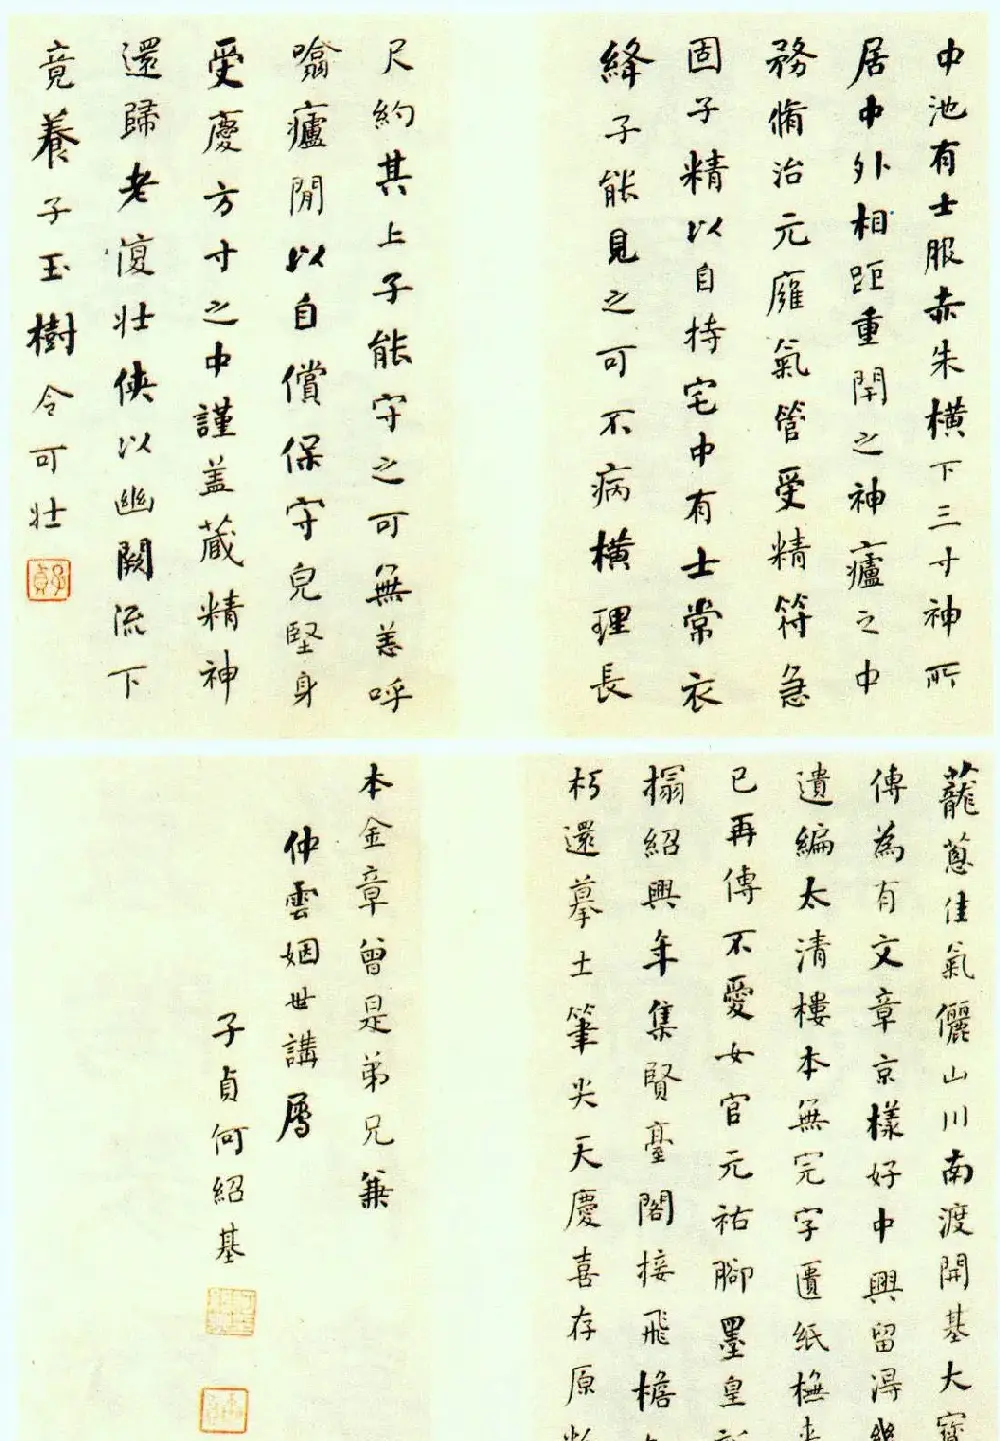 中池有士服赤朱横下三寸神所
居中外相距重閉之神廬之中
務脩治元廱氣管受精符急
固子精以自持宅中有士常衣
絳子能見之可不病横理長
尺約其上子能守之可無恙呼
噏廬閒以自償保守皃堅身
受慶方寸之中謹盖藏精神
還歸老復壯俠以幽闕流下
竟養子玉樹令可壯
蘢蔥佳氣儷山川南渡開基大寶
傳為有文章京様好中興留得
遺編太清樓本無完字匱紙橅
已再傳不愛女官元祐腳墨皇
榻紹興年集賢臺閣接飛檐
朽還摹士筆尖天慶喜存原
本金章曾是弟兄兼
仲雲姻世講屬
子貞何紹基
子貞